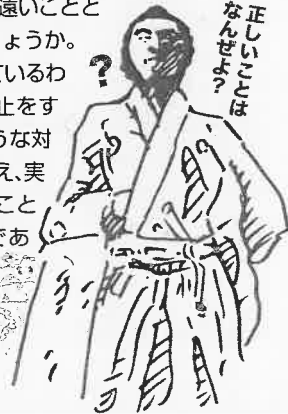 遠いことと
ょうか。
ているわ
止をす
うな対
え、実
こと
であ
?
正しいことは
なんぜよ?